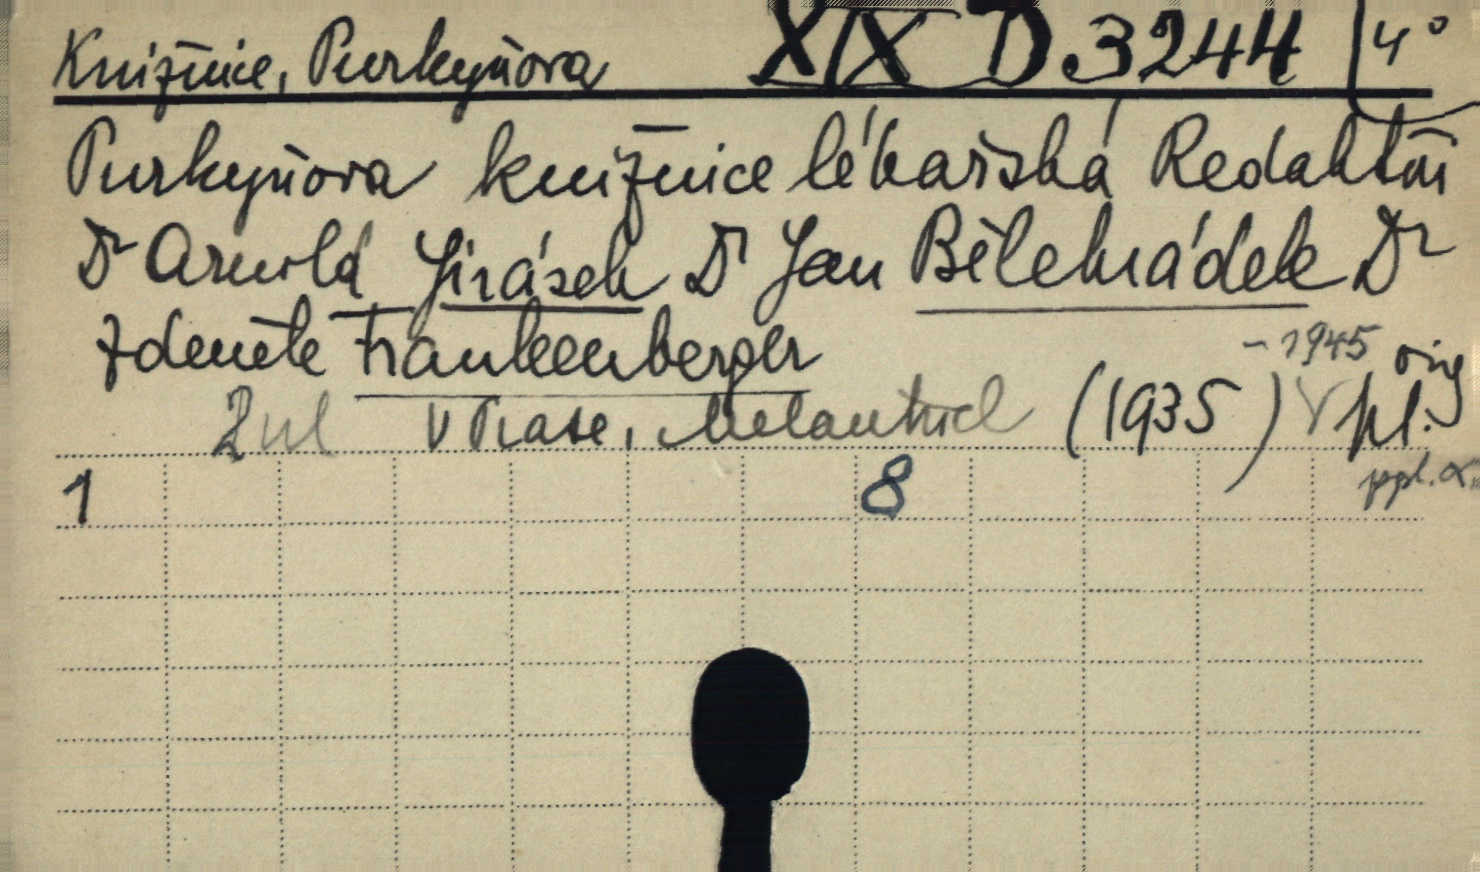 Knižnice, Purkyňova XIX D 3244 4°
Purkyňova knižnice lékařská Redaktoři
Dr Arnold Jirásek Dr Jan Bělehrádek Dr
Zdeněk Frankenberger
- 1945 orig
V Praze, Melantrich (1935) pl.
1 8